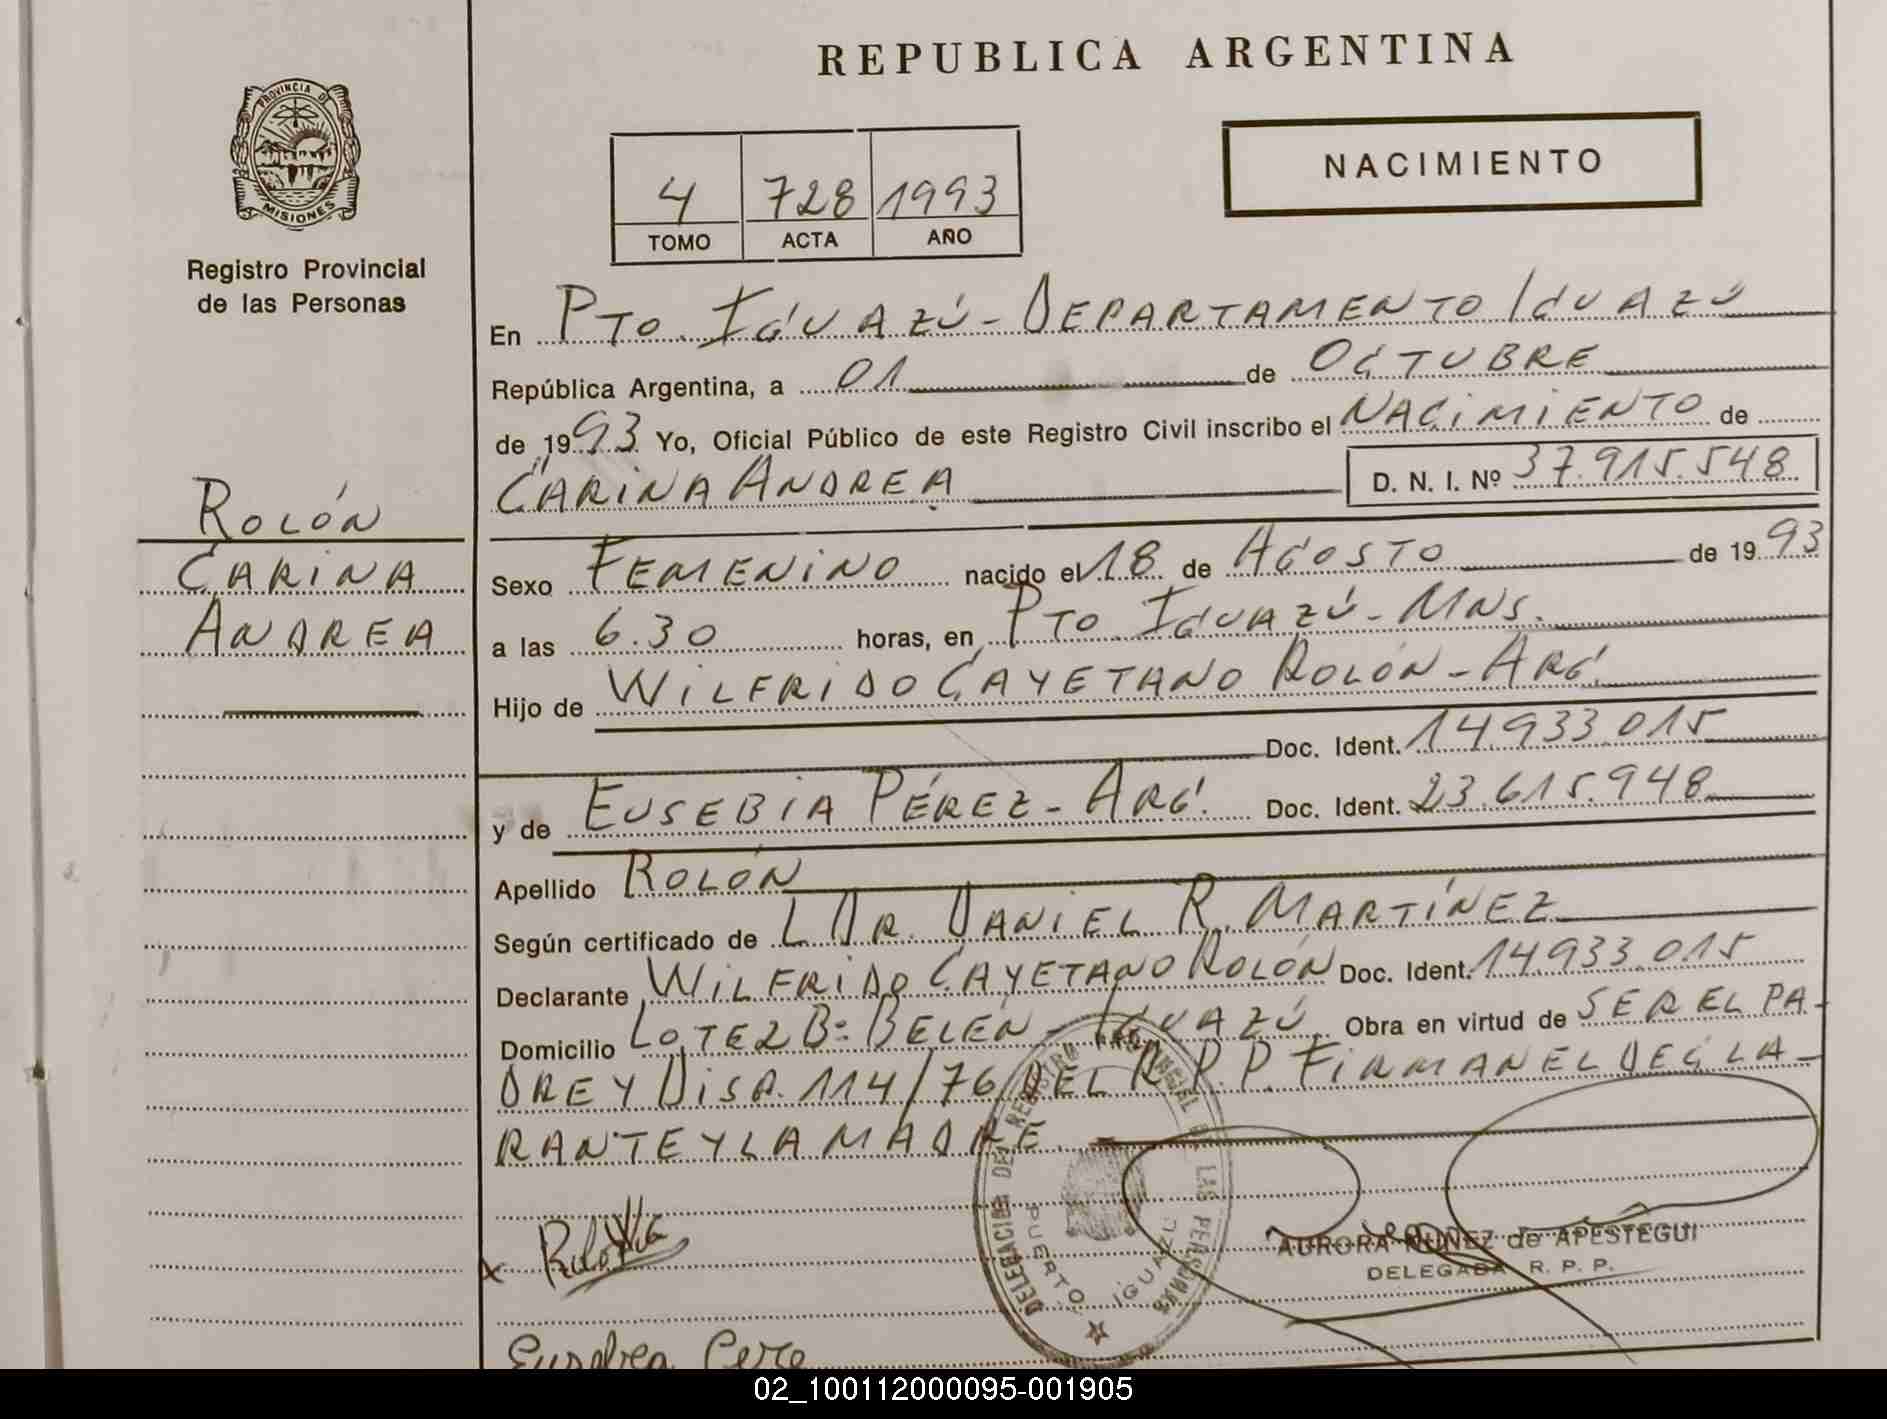 REPUBLICA ARGENTINA
PROVINCIA DE
MISIONES
Registro Provincial
de las Personas
NACIMIENTO
4 728 1993
TOMO ACTA AÑO
En PTO. IGUAZÚ - DEPARTAMENTO IGUAZÚ
República Argentina, a 01 de OCTUBRE
de 1993 Yo, Oficial Público de este Registro Civil inscribo el NACIMIENTO de
CARINA ANDREA D. N. I. Nº 37.915.548
ROLÓN
CARINA
ANDREA
Sexo FEMENINO nacido el 18 de AGOSTO de 1993
a las 6.30 horas, en PTO. IGUAZÚ - MNS.
Hijo de WILFRIDO CAYETANO ROLÓN - ARG.
Doc. Ident. 14.933.015
y de EUSEBIA PÉREZ - ARG. Doc. Ident. 23.615.948
Apellido ROLÓN
Según certificado de L DR. DANIEL R. MARTÍNEZ
Declarante WILFRIDO CAYETANO ROLÓN Doc. Ident. 14.933.015
Domicilio LOTE 2 Bº BELÉN - IGUAZÚ Obra en virtud de SER EL PA-
DRE Y DISP. 114/76 DEL R.P.P. FIRMAN EL DECLA-
RANTE Y LA MADRE.
DELEGACION DEL REGISTRO PROVINCIAL DE LAS PERSONAS
PUERTO IGUAZU
AURORA NUÑEZ de APESTEGUI
DELEGADA R. P. P.
02_100112000095-001905